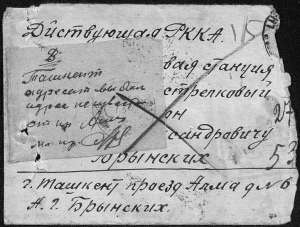 Дйствующая РККА. 115
В
Ташкент
адресат выбыл
адрес неизвест
вая станция
стрелковый
он
сандровичу
Брынских
53
г. Ташкент проезд Алма д № 6
А. Г. Брынских.